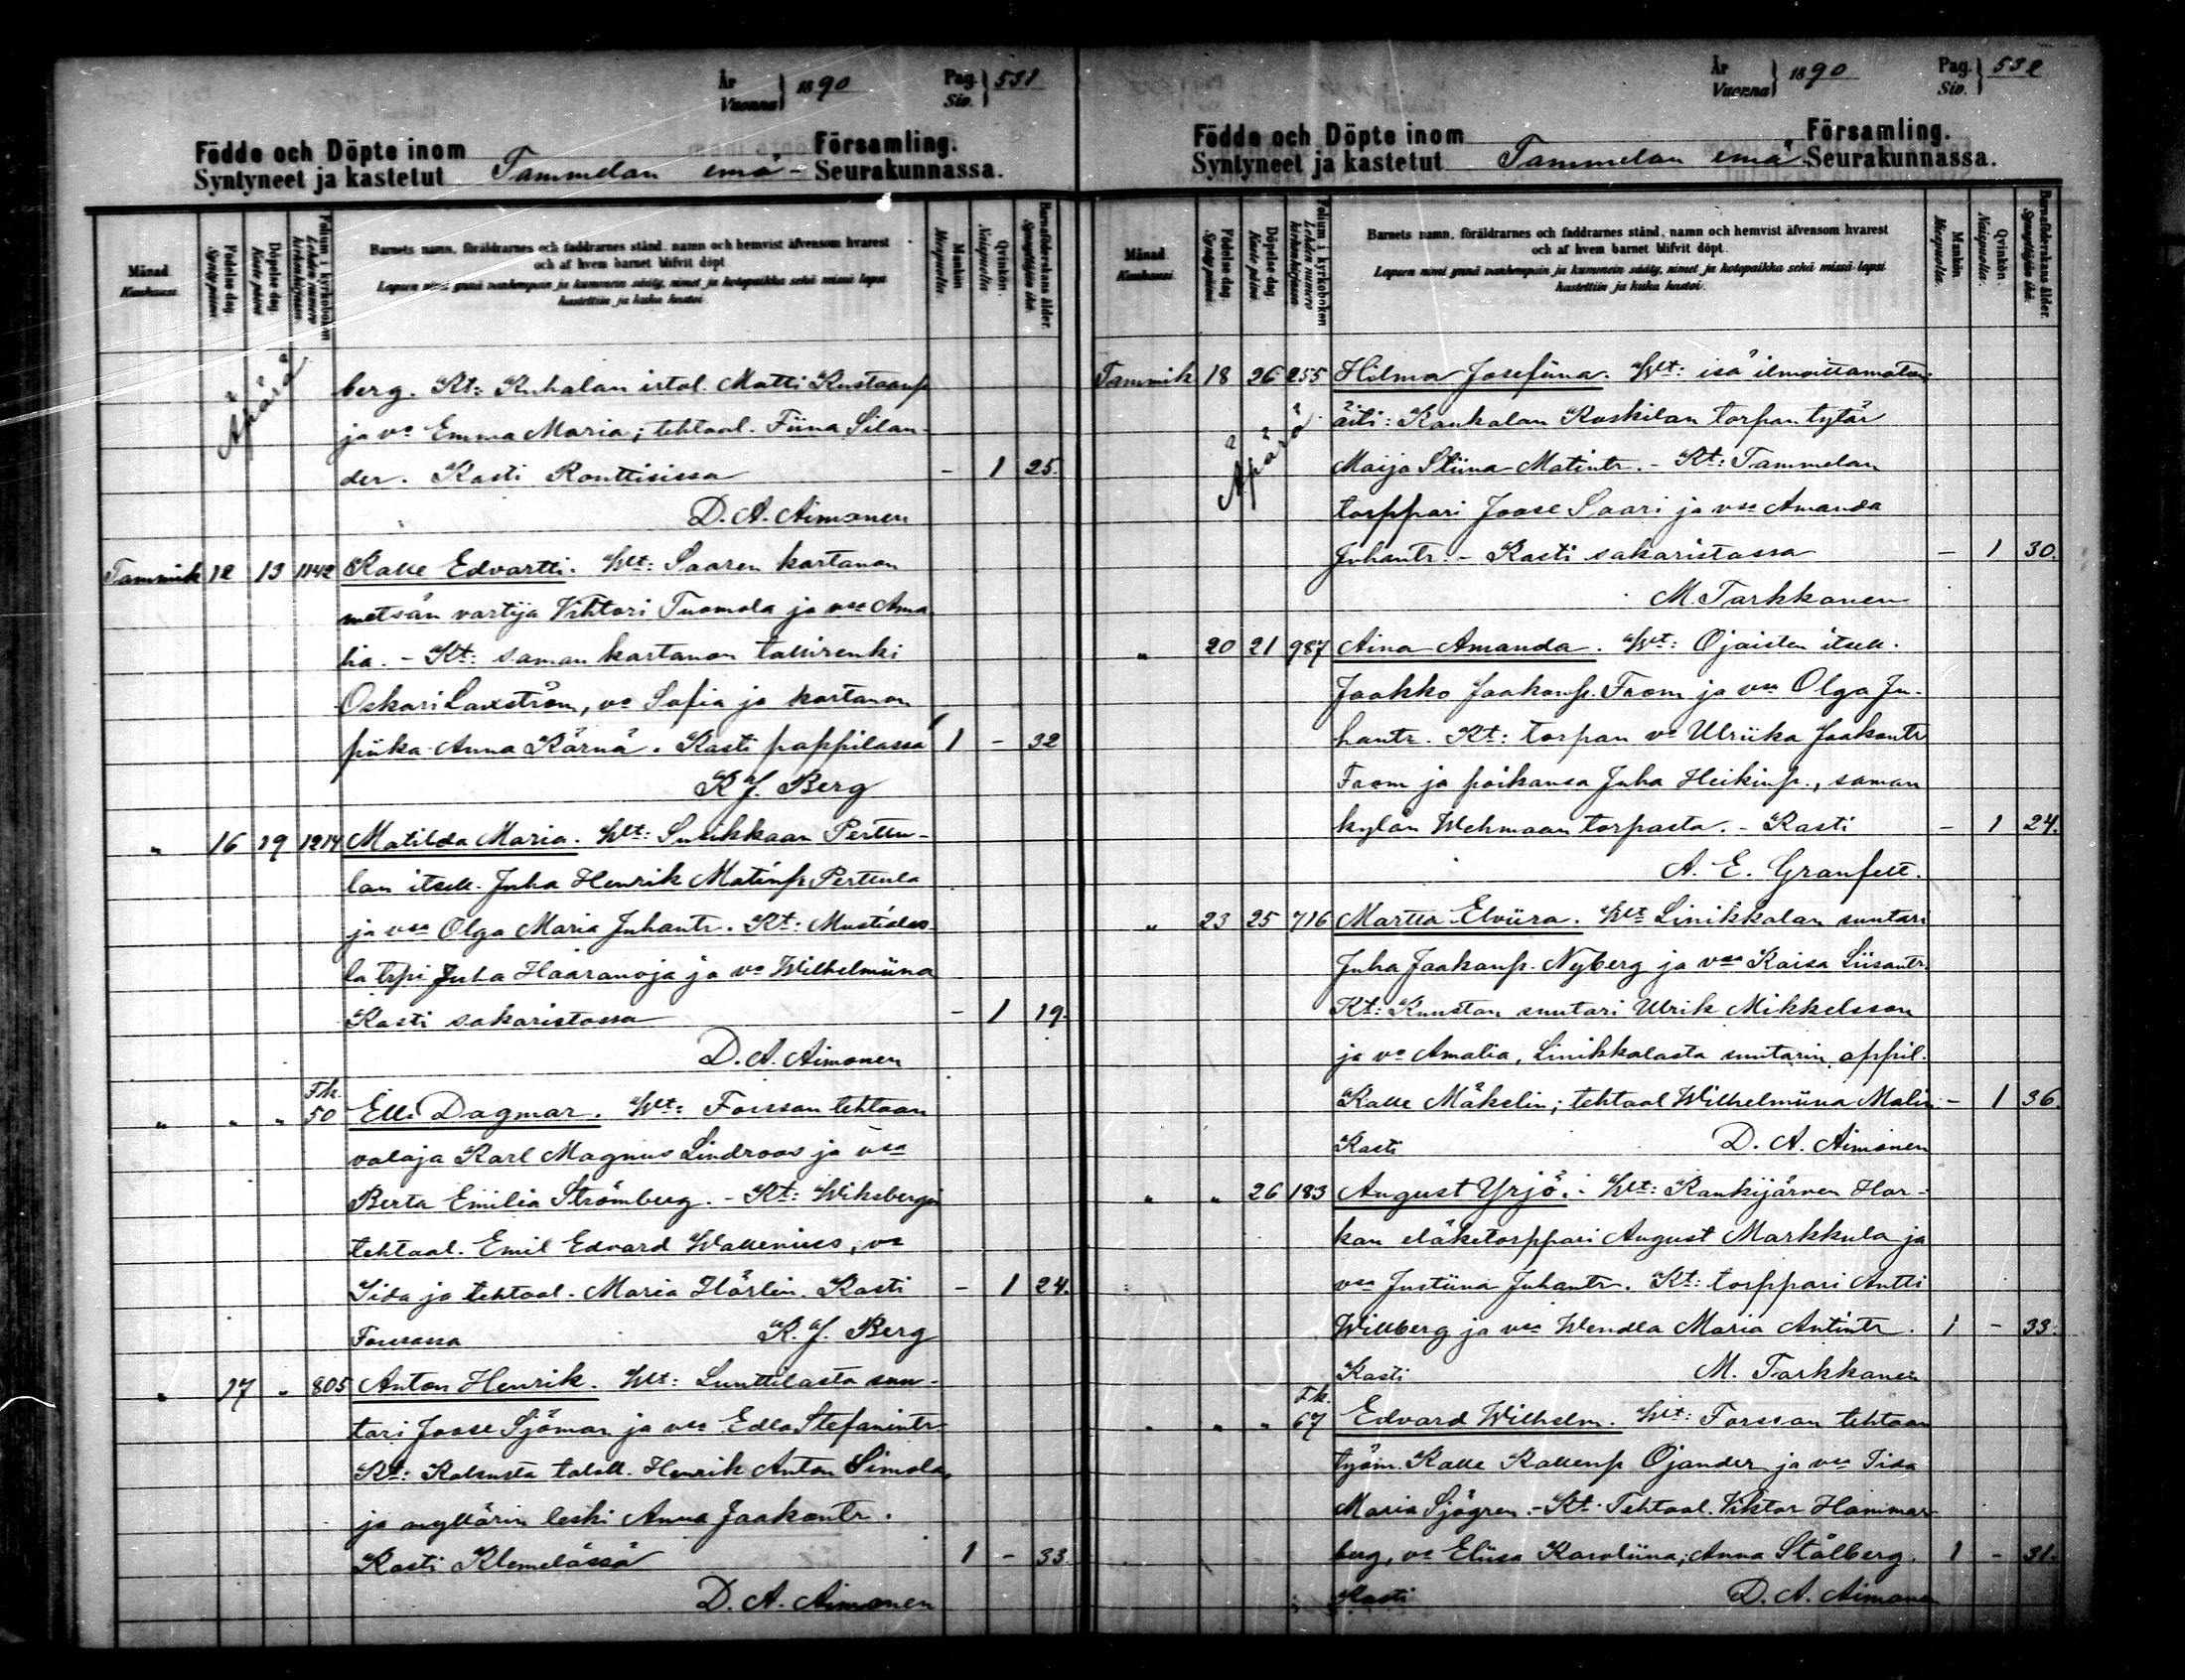 År
Vuonna } 1890
Pag.
Siv. } 531
Födde och Döpte inom
Syntyneet ja kastetut Tammelan emä- Församling.
Seurakunnassa.
Månad.
Kuukausi.
Födelse dag.
Synty päivä.
Döpelse dag.
Kaste päivä
Folium i kyrkoboken
Lehden numero kirkonkirjassa.
Barnets namn, föräldrarnes och faddrarnes stånd, namn och hemvist äfvensom hvarest
och af hvem barnet blifvit döpt.
Lapsen nimi ynnä vanhempain ja kummein sääty, nimet ja kotopaikka sekä missä lapsi
kastettiin ja kuka kastoi.
Mankön.
Miespuolia.
Qvinkön.
Naispuolia.
Barnaföderskans ålder.
Synnyttäjän ikä.
Äpärä
berg. Kt: Kuhalan irtol. Matti Kustaanp
ja vo Emma Maria; tehtaal. Fiina Silan-
der. Kasti Ronttisissa - 1 25.
D. A. Aimonen
Tammik 12 13 1142 Kalle Edvartti. Wt: Saaren kartanon
metsän vartija Vihtori Tuomola ja vsa Ama
lia. - Kt: saman kartanon tallirenki
Oskari Laxström, vo Sofia ja kartanon
piika Anna Kärnä. Kasti pappilassa 1 - 32
K J. Berg
" 16 19 1214 Matilda Maria. Wt: Sukkaan Perttu-
lan itsell. Juha Henrik Matinp. Perttula
ja vsa Olga Maria Juhantr. Kt: Mustiala
la trpi Juha Haaranoja ja vo Wilhelmiina
Kasti sakaristossa - 1 19.
D. A. Aimonen
" " " Fk. 50 Elli Dagmar. Wt: Forssan tehtaan
valaja Karl Magnus Lindroos ja vsa
Berta Emilia Strömberg. - Kt: Wiksbergin
tehtaal. Emil Edvard Wallenius, vo
Iida ja tehtaal. Maria Hörlin. Kasti - 1 24.
Forssassa K. J. Berg
" 17 " 805 Anton Henrik. Wt: Lunttilasta suu-
tari Joose Sjöman ja vsa Edla Stefanintr.
Kt: Kaksusta taloll. Henrik Anton Simola,
ja myllärin leski Anna Jaakontr.
Kasti Klemelässä 1 - 33.
D. A. Aimonen
År
Vuonna } 1890
Pag.
Siv. } 532
Födde och Döpte inom
Syntyneet ja kastetut Tammelan emä Församling.
Seurakunnassa.
Månad.
Kuukausi.
Födelse dag.
Synty päivä.
Döpelse dag.
Kaste päivä.
Folium i kyrkoboken
Lehden numero kirkonkirjassa.
Barnets namn, föräldrarnes och faddrarnes stånd, namn och hemvist äfvensom hvarest
och af hvem barnet blifvit döpt.
Lapsen nimi ynnä vanhempain ja kummein sääty, nimet ja kotopaikka sekä missä lapsi
kastettiin ja kuka kastoi.
Mankön.
Miespuolia.
Qvinkön.
Naispuolia.
Barnaföderskans ålder.
Synnyttäjän ikä.
Tammik 18 26 255 Hilma Josefiina. Wt: isä ilmoittamaton
Äpärä
äiti: Kaukolan Koskilan torpan tytär
Maija Stiina Matintr. - Kt: Tammelan
torppari Joose Saari ja vsa Amanda
Juhantr. - Kasti sakaristossa - 1 30.
M. Tarkkanen
" 20 21 987 Aina Amanda. Wt: Ojaisten itsell.
Jaakko Jaakonp. From ja vsa Olga Ju-
hantr. Kt: torpan vo Ulriika Jaakontr
From ja poikansa Juha Heikinp., saman
kylän Wehmaan torpasta. - Kasti - 1 24.
A. E. Granfelt.
" 23 25 716 Martta Elviira. Wt: Linikkalan suutari
Juha Jaakonp. Nyberg ja vsa Kaisa Liisantr.
Kt: Kuuston suutari Ulrik Mikkelsson
ja vo Amalia, Linikkalasta suutarin oppil.
Kalle Mäkelin; tehtaal Wilhelmiina Malin - 1 36.
Kasti D. A. Aimonen
" " 26 183 August Yrjö. Wt: Kaukijärven Har-
kan eläketorppari August Markkula ja
vsa Justiina Juhantr. Kt: torppari Antti
Willberg ja vsa Wendla Maria Antintr. 1 - 33.
Kasti M. Tarkkanen
" " " Fk. 67 Edvard Wilhelm. Wt: Forssan tehtaan
työm. Kalle Kallenp Ojander ja vsa Iida
Maria Sjögren. - Kt: Tehtaal. Viktor Hammar-
berg, vo Eliisa Karoliina; Anna Stålberg. 1 - 31.
Kasti D. A. Aimonen